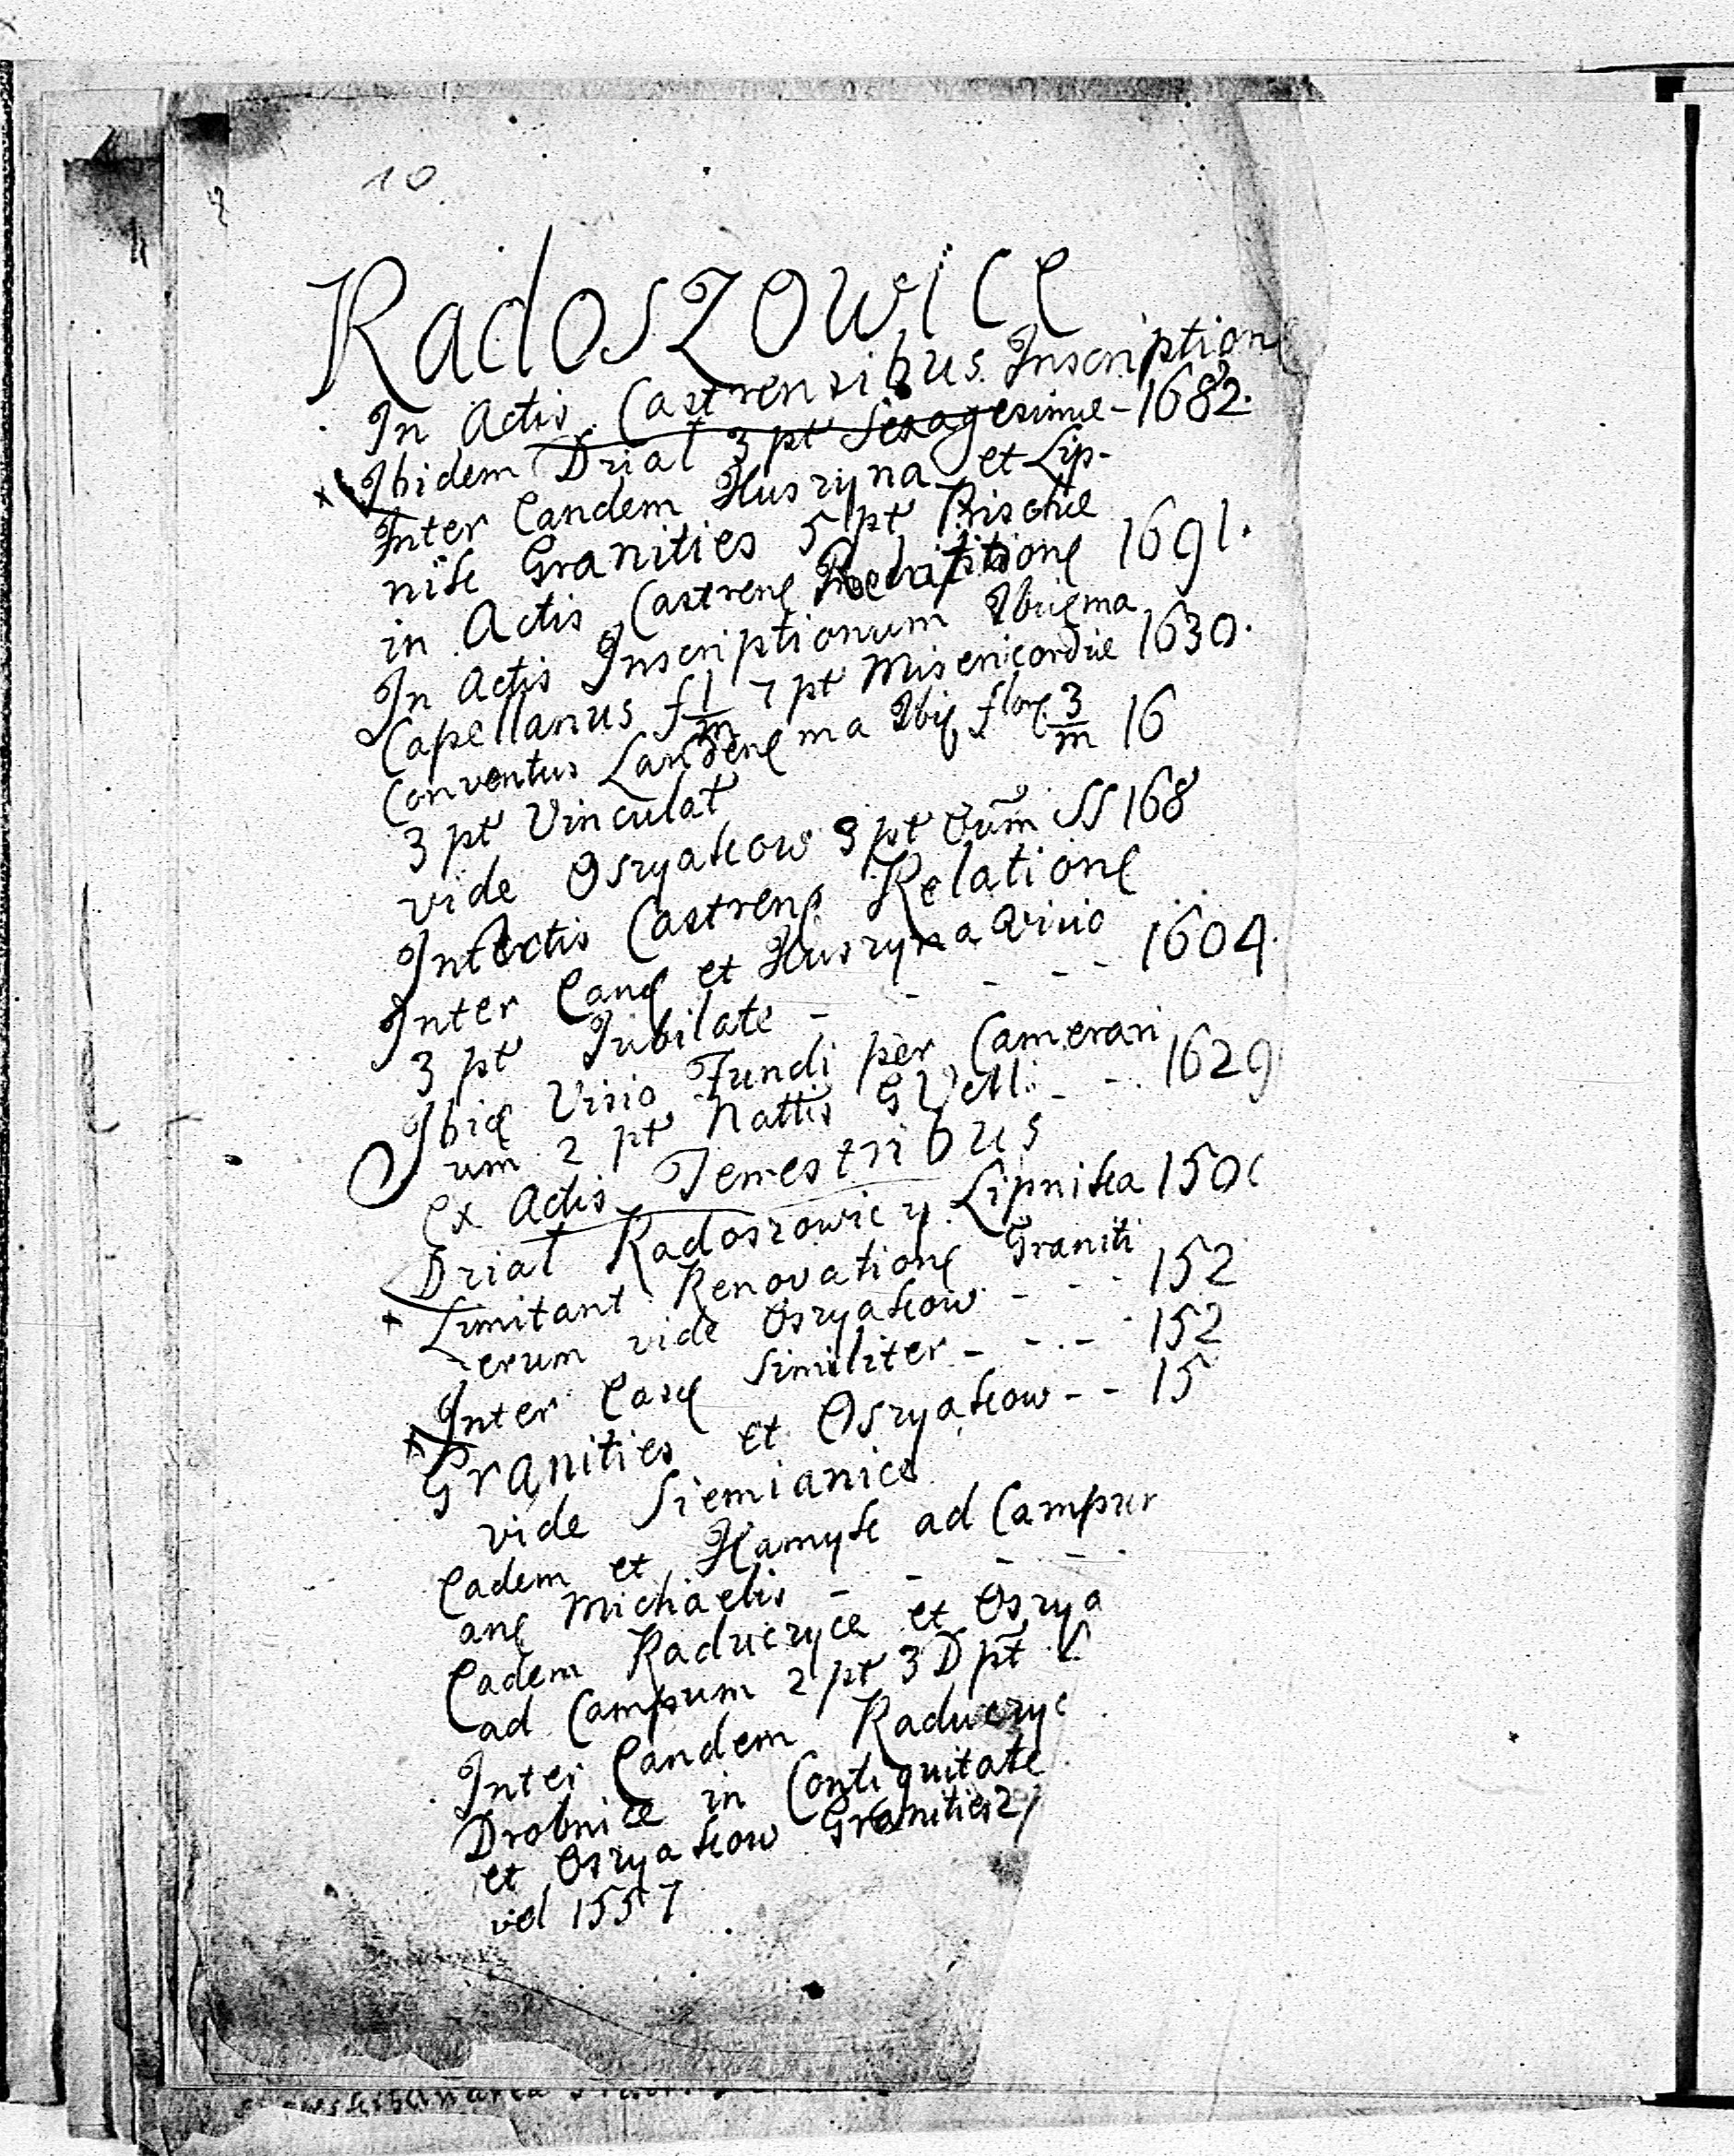 10
Radoszowice
In Actis Castrensibus Inscription
Ibidem Dział 3 pt Sexagesimæ - 1682.
Inter Eandem Huszyna et Lip-
nik Granities 5 pt Priscæ
in Actis Castren 1691.
In Actis Inscriptionum
Capellanus f 1/m 7 pt Misericordiæ 1630.
Conventus Landen ma Ibiq flor 3/m 16
3 pt Vinculat
vide Oszyakow 3 pt Oum SS 168
In Actis Castrens Relation
Inter Eand et Huszyna Visio
3 pt Jubilate - - - - - 1604.
Ibid Visio Fundi per Camerari
um 2 pt Nattis G Vell. - - 1629
Ex Actis Terrestribus
Dział Radoszowic y Lipnika 150
Limitant Renovation Graniti
erum vide Oszyakow - - - 152
Inter Easd Similiter - - - - 152
Granities et Oszyakow - - 15
vide Siemianice
Eadem et Kamyk ad Campum
an Michaelis - - - - -
Eadem Raduczyce et Oszya
ad Campum 2 pt 3 D pt
Inter Eandem Raduczyc
Drobnice in Contiguitate
et Oszyakow Granities 2
vel 1557